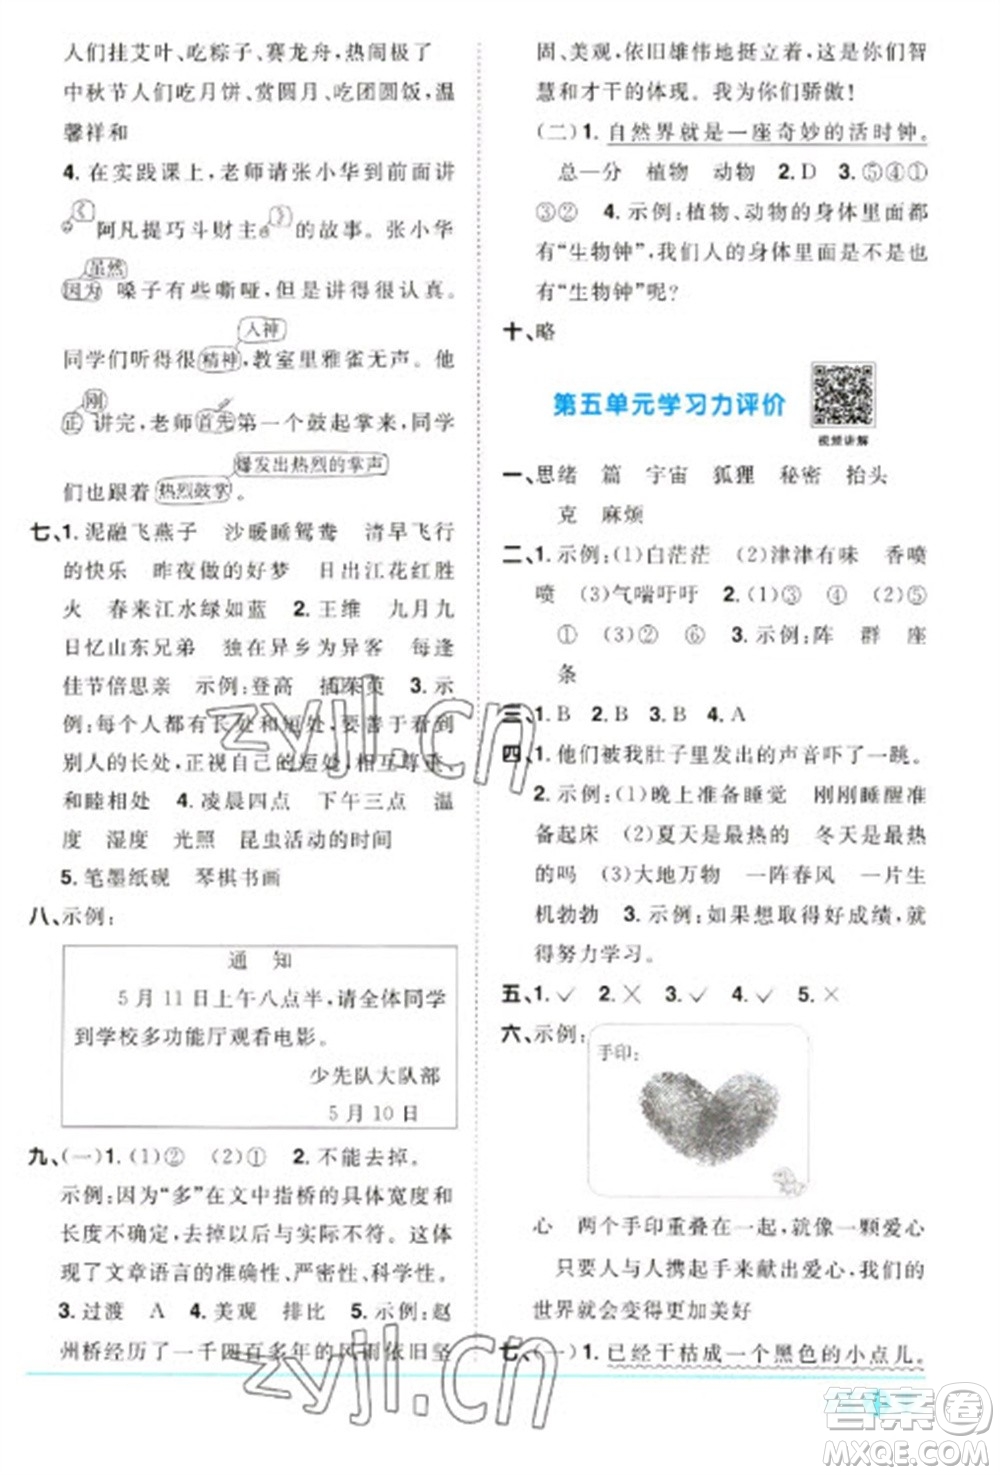 人们挂艾叶、吃粽子、赛龙舟,热闹极了
中秋节人们吃月饼、赏圆月、吃团圆饭,温
馨祥和
4. 在实践课上,老师请张小华到前面讲
《 》
阿凡提巧斗财主。的故事。张小华
虽然
因为 嗓子有些嘶哑,但是讲得很认真。
入神
同学们听得很精神,教室里雅雀无声。他
刚
正讲完,老师首先第一个鼓起掌来,同学
爆发出热烈的掌声
们也跟着热烈鼓掌。
七、1. 泥融飞燕子 沙暖睡鸳鸯 清早飞行
的快乐 昨夜做的好梦 日出江花红胜
火 春来江水绿如蓝 2. 王维 九月九
日忆山东兄弟 独在异乡为异客 每逢
佳节倍思亲 示例:登高 插茱萸 3. 示
例:每个人都有长处和短处,要善于看到
别人的长处,正视自己的短处,相互尊重、
和睦相处 4. 凌晨四点 下午三点 温
度 湿度 光照 昆虫活动的时间
5. 笔墨纸砚 琴棋书画
八、示例:
通 知
5月11日上午八点半,请全体同学
到学校多功能厅观看电影。
少先队大队部
5月10日
九、(一)1. (1)② (2)① 2. 不能去掉。
示例:因为“多”在文中指桥的具体宽度和
长度不确定,去掉以后与实际不符。这体
现了文章语言的准确性、严密性、科学性。
3. 过渡 A 4. 美观 排比 5. 示例:赵
州桥经历了一千四百多年的风雨依旧坚
固、美观,依旧雄伟地挺立着,这是你们智
慧和才干的体现。我为你们骄傲!
(二)1. 自然界就是一座奇妙的活时钟。
总—分 植物 动物 2. D 3. ⑤④①
③② 4. 示例:植物、动物的身体里面都
有“生物钟”,我们人的身体里面是不是也
有“生物钟”呢?
十、略
第五单元学习力评价
视频讲解
一、思绪 篇 宇宙 狐狸 秘密 抬头
克 麻烦
二、1. 示例:(1)白茫茫 (2)津津有味 香喷
喷 (3)气喘吁吁 2. (1)③ ④ (2)⑤
① (3)② ⑥ 3. 示例:阵 群 座
条
三、1. B 2. B 3. B 4. A
四、1. 他们被肚子里发出的声音吓了一跳。
2. 示例:(1)晚上准备睡觉 刚刚睡醒准
备起床 (2)夏天是最热的 冬天是最热
的吗 (3)大地万物 一阵春风 一片生
机勃勃 3. 示例:如果想取得好成绩,就
得努力学习。
五、1. ✓ 2. ✕ 3. ✓ 4. ✓ 5. ✕
六、示例:
手印:
心 两个手印重叠在一起,就像一颗爱心
只要人与人携起手来献出爱心,我们的
世界就会变得更加美好
七、(一)1. 已经干枯成一个黑色的小点儿。
zyjl.cn
zyjl.cn
答案圈
MXQE.COM